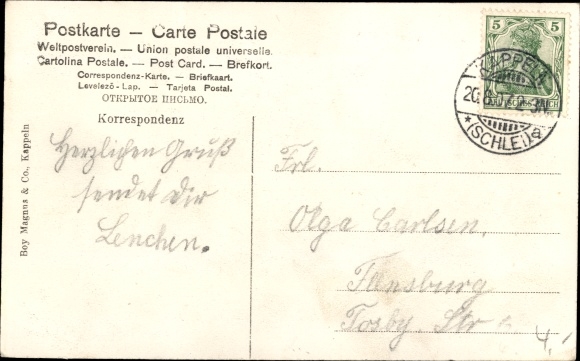 Postkarte — Carte Postale
Weltpostverein. — Union postale universelle.
Cartolina Postale. — Post Card. — Brefkort.
Correspondenz-Karte. — Briefkaart.
Levelező-Lap. — Tarjeta Postal.
ОТКРЫТОЕ ПИСЬМО.
Korrespondenz
Herzlichen Gruß
sendet Dir
Lenchen.
Boy Magnus & Co., Kappeln
5 5
DEUTSCHES REICH
KAPPELN
20.8.07. 2-3N.
* (SCHLEI) a
Frl.
Olga Carlsen,
Flensburg
Torsby. Str
4,